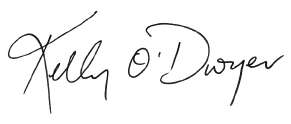 Kelly O'Dwyer